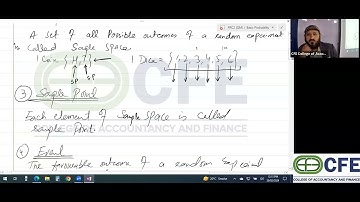 A set of all Possible outcomes of a random experiment
is called Sample Space.
1 Coin = { H, T }
1 Dice = { 1, 2, 3, 4, 5, 6 }
SP SP
③ Sample Point
Each element of Sample Space is called
sample Point.
④ Event
The favourable outcome of a random Experiment
CFE College of Acco...
CFE
COLLEGE OF ACCOUNTANCY AND FINANCE
CFE
COLLEGE OF ACCOUNTANCY AND FINANCE